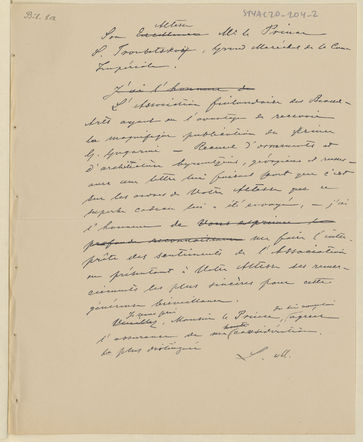 Altesse
Son Excellence Mr le Prince
P. Troubetskoy, Grand Marechal de la Cour
Impériale.
J'ai l'honneur de
L'Association finlandaise des Beaux-
Arts ayant eu l'avantage de recevoir
la magnifique publication du Prince
G. Gagarin — Recueil d'ornements et
d'architecture byzantins, géorgiens et russes
avec une lettre lui faisant part que c'est
sur les ordres de Votre Altesse que ce
superbe cadeau lui a été envoyé, — j'ai
l'honneur de vous exprimer la
profonde reconnaissance me faire l'inter-
prète des sentiments de l'Association
en présentant à Votre Altesse ses remer-
ciements les plus sincères pour cette
généreuse bienveillance.
Je vous prie
Veuillez, Monsieur le Prince, agréer
l'assurance de ma haute considération.
la plus distinguée